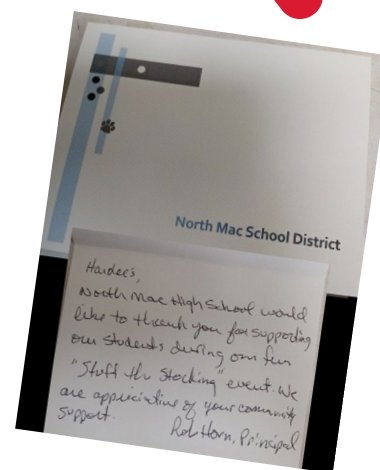 North Mac School District
Hardee's,
North Mac High School would
like to thank you for supporting
our students during our fun
"Stuff the Stocking" event. We
are appreciative of your community
support.
Rob Horn, Principal